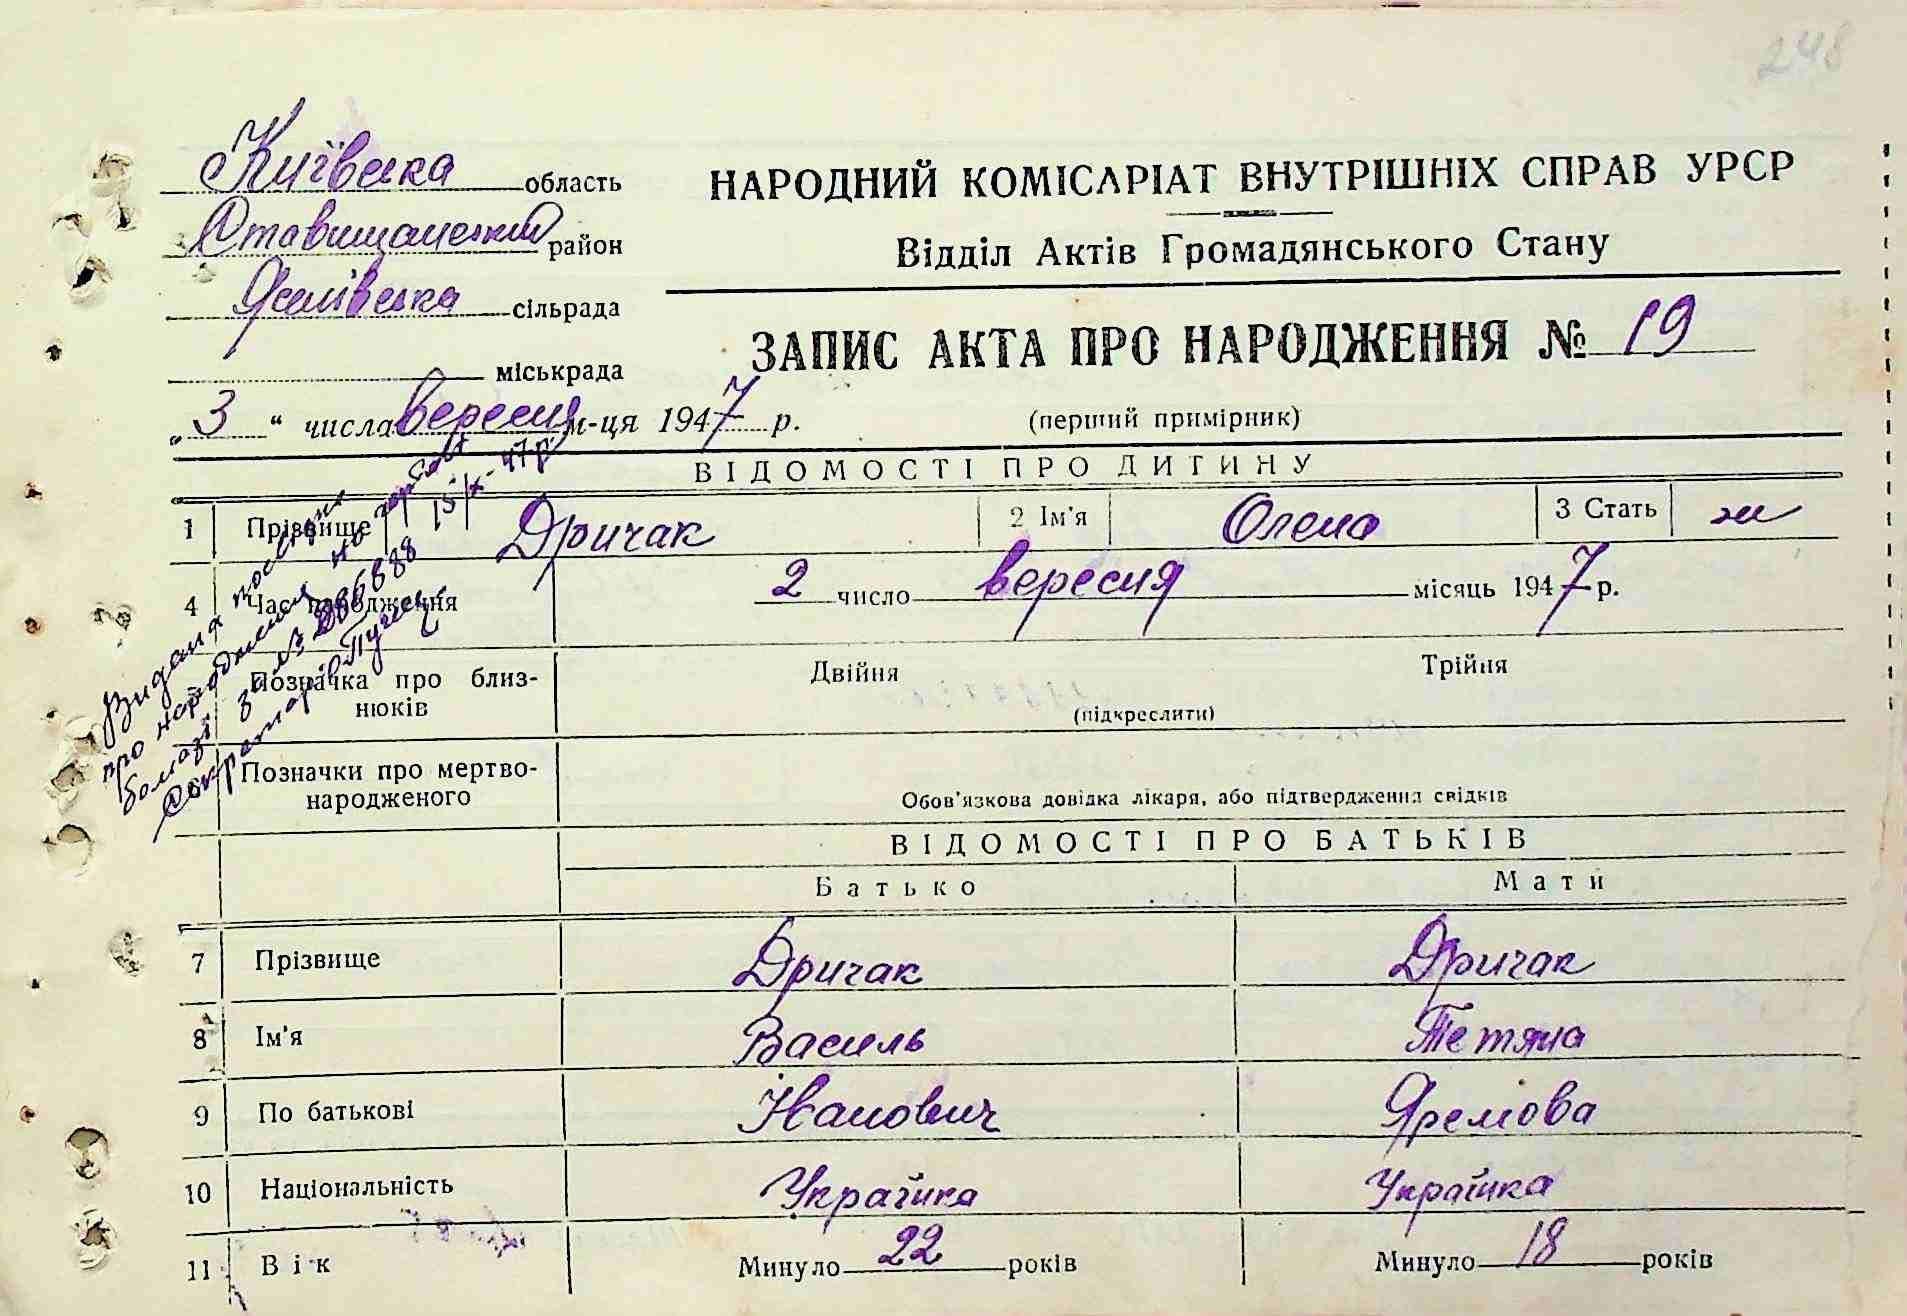 248
Київська область
Ставищанський район
Яселівська сільрада
міськрада
„3“ числа вересня м-ця 1947 р.
НАРОДНИЙ КОМІСАРІАТ ВНУТРІШНІХ СПРАВ УРСР
Відділ Актів Громадянського Стану
ЗАПИС АКТА ПРО НАРОДЖЕННЯ № 19
(перший примірник)
ВІДОМОСТІ ПРО ДИТИНУ
1 Прізвище Дричак 2 Ім'я Олена 3 Стать ж
4 Час народження 2 число вересня місяць 1947 р.
Позначка про близнюків Двійня Трійня
(підкреслити)
Позначки про мертвонародженого
Обов'язкова довідка лікаря, або підтвердження свідків
про народження на
15/X-47р.
за №
ВІДОМОСТІ ПРО БАТЬКІВ
Батько Мати
7 Прізвище Дричак Дричак
8 Ім'я Василь Тетяна
9 По батькові Іванович Яремова
10 Національність Українка Українка
11 Вік Минуло 22 років Минуло 18 років